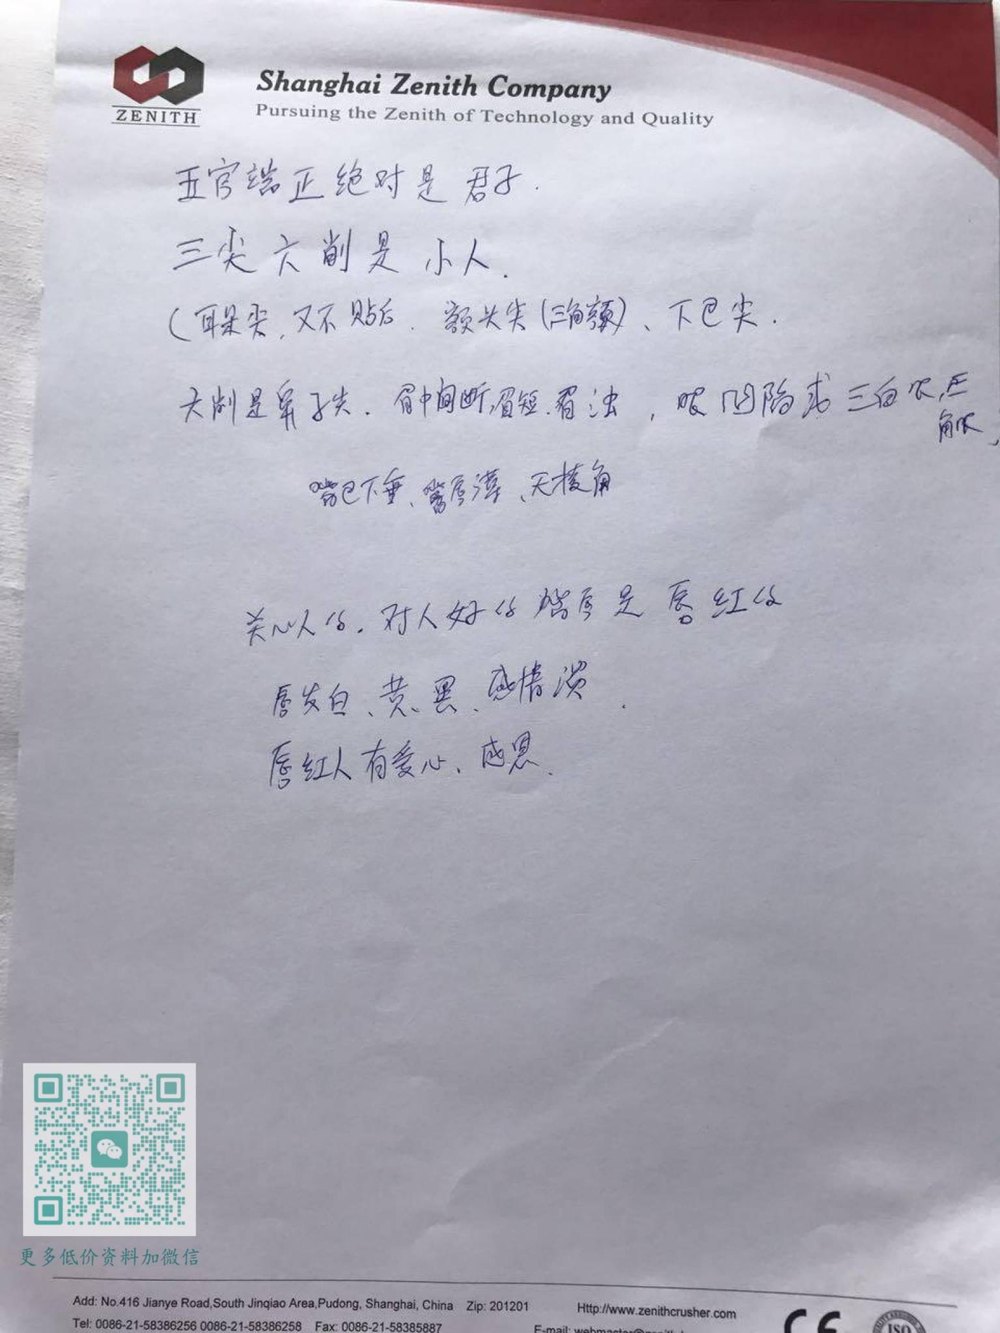 ZENITH
Shanghai Zenith Company
Pursuing the Zenith of Technology and Quality
五官端正绝对是君子.
三尖六削是小人.
(耳朵尖,又不贴后.额头尖(三角额)、下巴尖.
六削是鼻子尖.眉中间断,眉短.眉浊,眼凹陷或三白眼,三
角眼,
嘴巴下垂、嘴唇薄、无棱角
关心人的.对人好的嘴唇是唇红的
唇发白、黄、黑、感情淡.
唇红人有爱心、感恩.
更多低价资料加微信
Add: No.416 Jianye Road,South Jinqiao Area,Pudong, Shanghai, China Zip: 201201 Http://www.zenithcrusher.com
Tel: 0086-21-58386256 0086-21-58386258 Fax: 0086-21-58385887 E-mail:
CE
ISO